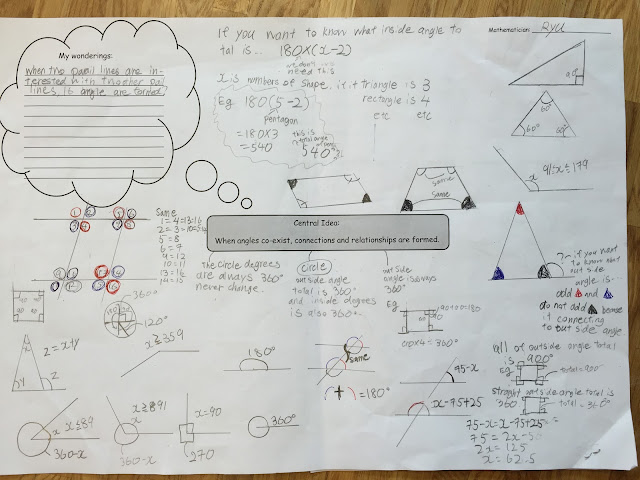 My wonderings:
when two
lines are in-
lines, 16 angle are formed.
If you want to know what inside angle to
tal is... 180×(x-2)
need this
x is numbers of shape. if it triangle is 3
rectangle is 4
etc etc
Eg. 180(5-2)
Pentagon
=180×3
=540
this is
total angle
540°
Mathematician: RYU
60°
60° 60°
x 91≤x≤179
same
same
Central Idea:
When angles co-exist, connections and relationships are formed.
same
1=4=13=16
5=8
6=7
9=12
10=11
13=16
14=15
The circle degrees
are always 360°
never change...
circle
out side angle
total is 360°
and inside degrees
is also 360°
out side
angle is always
360°
Eg
90+90=180
90×4=360°
if you want
to know what
out side
angle is...
add and
do not add
it connecting
to out side angle
All of outside angle total
is 900°
Eg
total=900°
out side angle total is
360°
total=360°
360°
120°
z=x+y
x
y z
x≥359
180°
same
( + ) =180°
75-x
x-75+25
75-x=x-75+25
2x=125
x=62.5
x x≤89
360-x
x≥91
360-x
x=90
270
360°